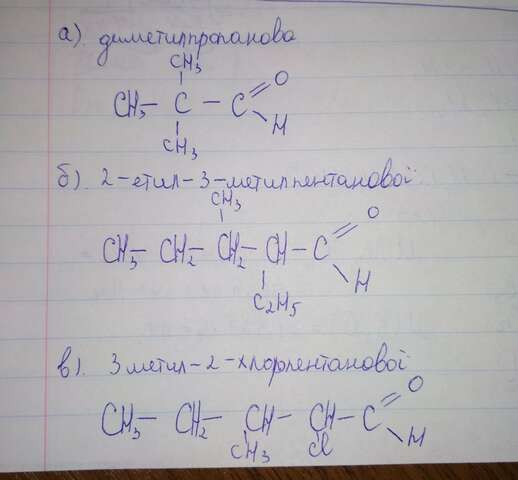 а). диметилпропанова
CH₃
CH₃ – C – C = O
H
CH₃
б). 2-етил-3-метилпентанової
CH₃
O
CH₃ – CH₂ – CH₂ – CH – C
H
C₂H₅
в). 3 метил-2-хлорпентанової
O
CH₃ – CH₂ – CH – CH – C
H
CH₃ Cl